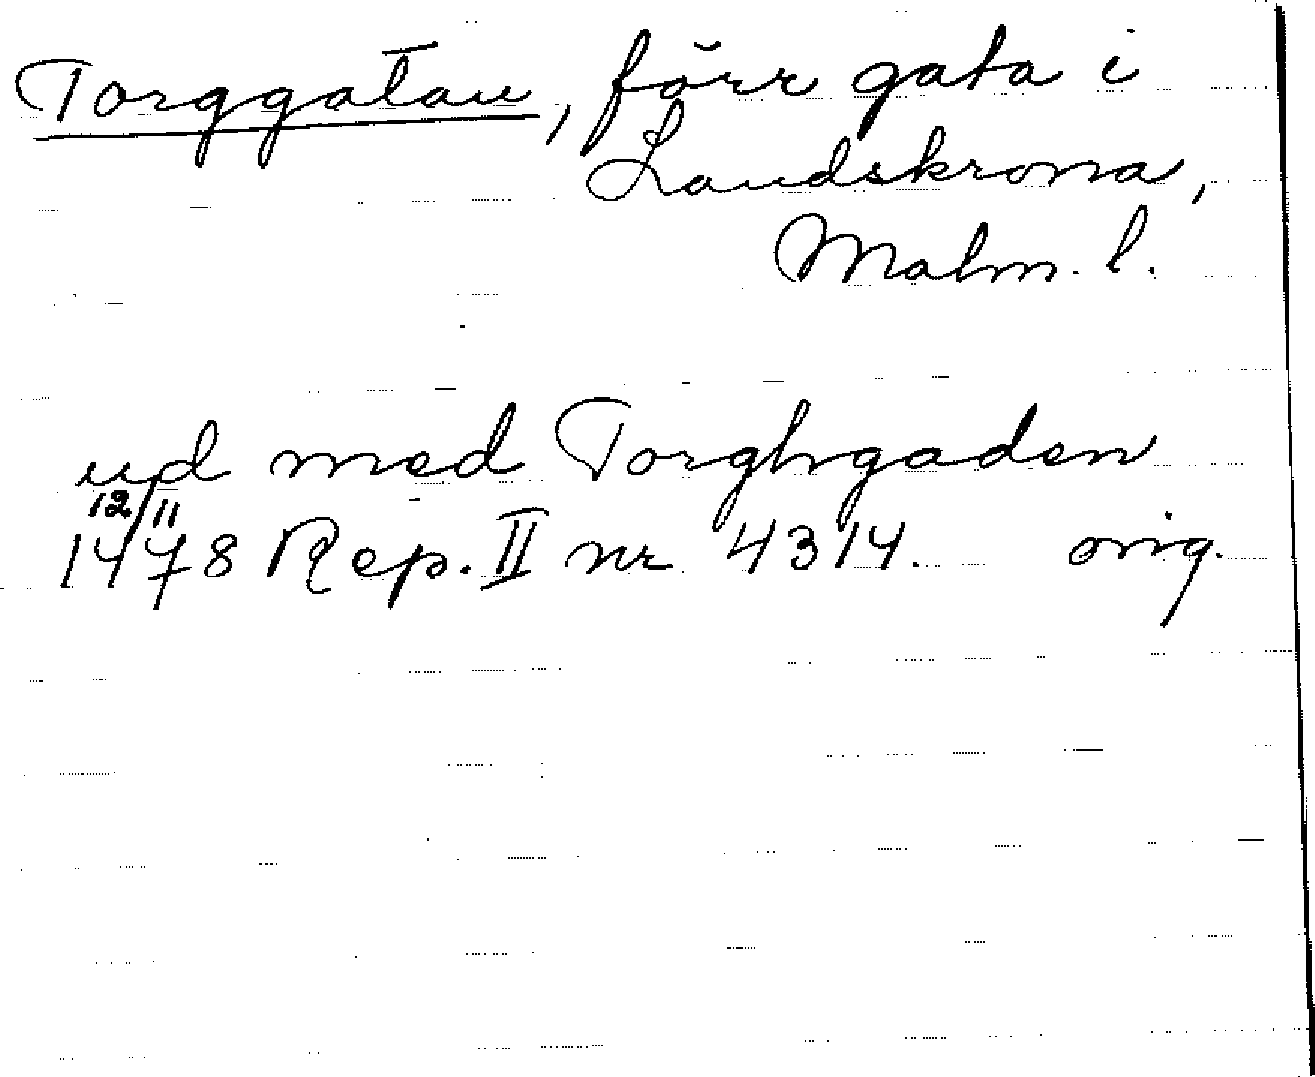 Torggatan, förr gata i
Landskrona,
Malm. l.
ud med Torghgaden
12/11
1478 Rep. II nr 4314. orig.